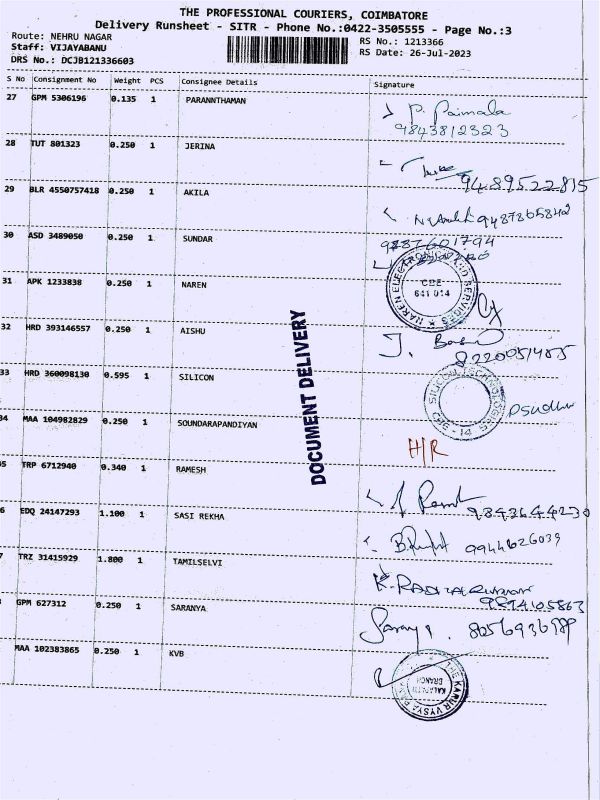 THE PROFESSIONAL COURIERS, COIMBATORE
Delivery Runsheet - SITR - Phone No.:0422-3505555 - Page No.:3
Route: NEHRU NAGAR
Staff: VIJAYABANU
DRS No.: DCJB121336603
RS No.: 1213366
RS Date: 26-Jul-2023
S No Consignment No Weight PCS Consignee Details Signature
27 GPM 5306196 0.135 1 PARANNTHAMAN P. Parimala
9843812323
28 TUT 801323 0.250 1 JERINA
9489522815
29 BLR 4550757418 0.250 1 AKILA 9487865842
30 ASD 3489050 0.250 1 SUNDAR 9487601794
31 APK 1233838 0.250 1 NAREN NAREN ELECTRICAL AND SERVICES CBE 641 014
32 HRD 393146557 0.250 1 AISHU J.
8220051405
33 HRD 360098130 0.595 1 SILICON SILICON TECHNOLOGIES CBE - 14
34 MAA 104982829 0.250 1 SOUNDARAPANDIYAN H/R
DOCUMENT DELIVERY
5 TRP 6712940 0.340 1 RAMESH
9843644230
6 EDQ 24147293 1.100 1 SASI REKHA 9944626039
7 TRZ 31415929 1.800 1 TAMILSELVI K.
GPM 627312 0.250 1 SARANYA Saranya. 8056936989
MAA 102383865 0.250 1 KVB THE KARUR VYSYA BANK KALAPATTI BRANCH